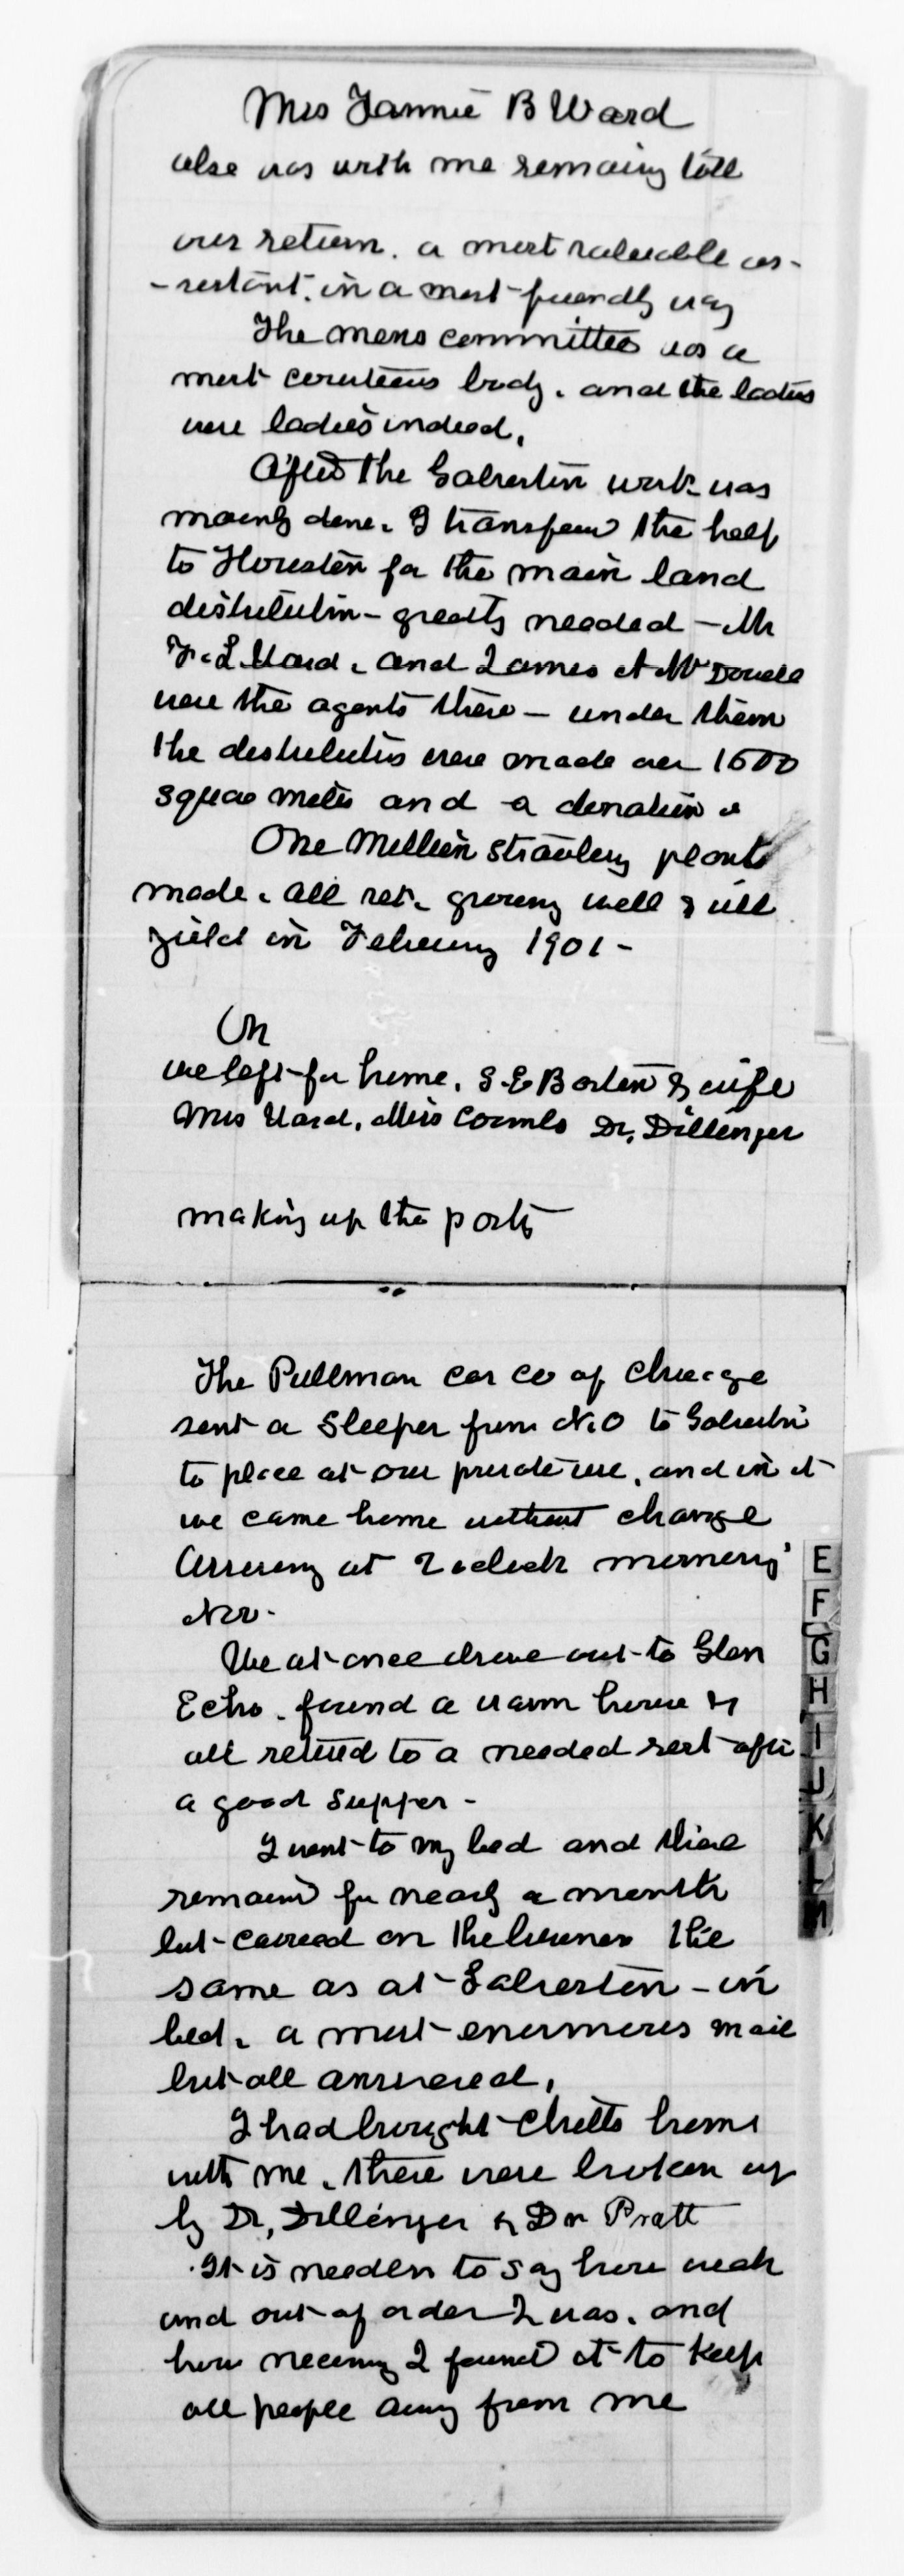 Mrs Fannie B Ward
also was with me remaing till
our return. a most valuable as-
-sistant. in a most friendly way
The mens committee was a
most courteous body. and the ladies
were ladies indeed.
After the Galveston work was
mainly done. I transferred the help
to Houston for the main land
distribution - greatly needed - Mr
F. L. Ward. and James A McDowell
were the agents there - under them
the distributions were made over 1500
square miles and a donation of
One Million strawberry plants
made. all set. growing well & will
yield in February 1901 -
On
we left for home. S. E Barton & wife
Mrs Ward. Miss Coombs Dr. Dillinger
making up the party
The Pullman Car Co of Chicago
sent a Sleeper from N.O to Galveston
to place at our private use. and in it
we came home without change
Arriving at 2 oclock morning
Nov.
We at once drove out to Glen
Echo. found a warm house &
all retired to a needed rest after
a good supper -
I went to my bed and there
remained for nearly a month
but carried on the business the
same as at Galveston - in
bed. a most enormous mail
but all answered.
I had brought Chills home
with me. these were broken up
by Dr. Dillinger & Dr Pratt
It is needless to say how weak
and out of order I was. and
how necessary I found it to keep
all people away from me
E
F
G
H
I
J
K
L
M